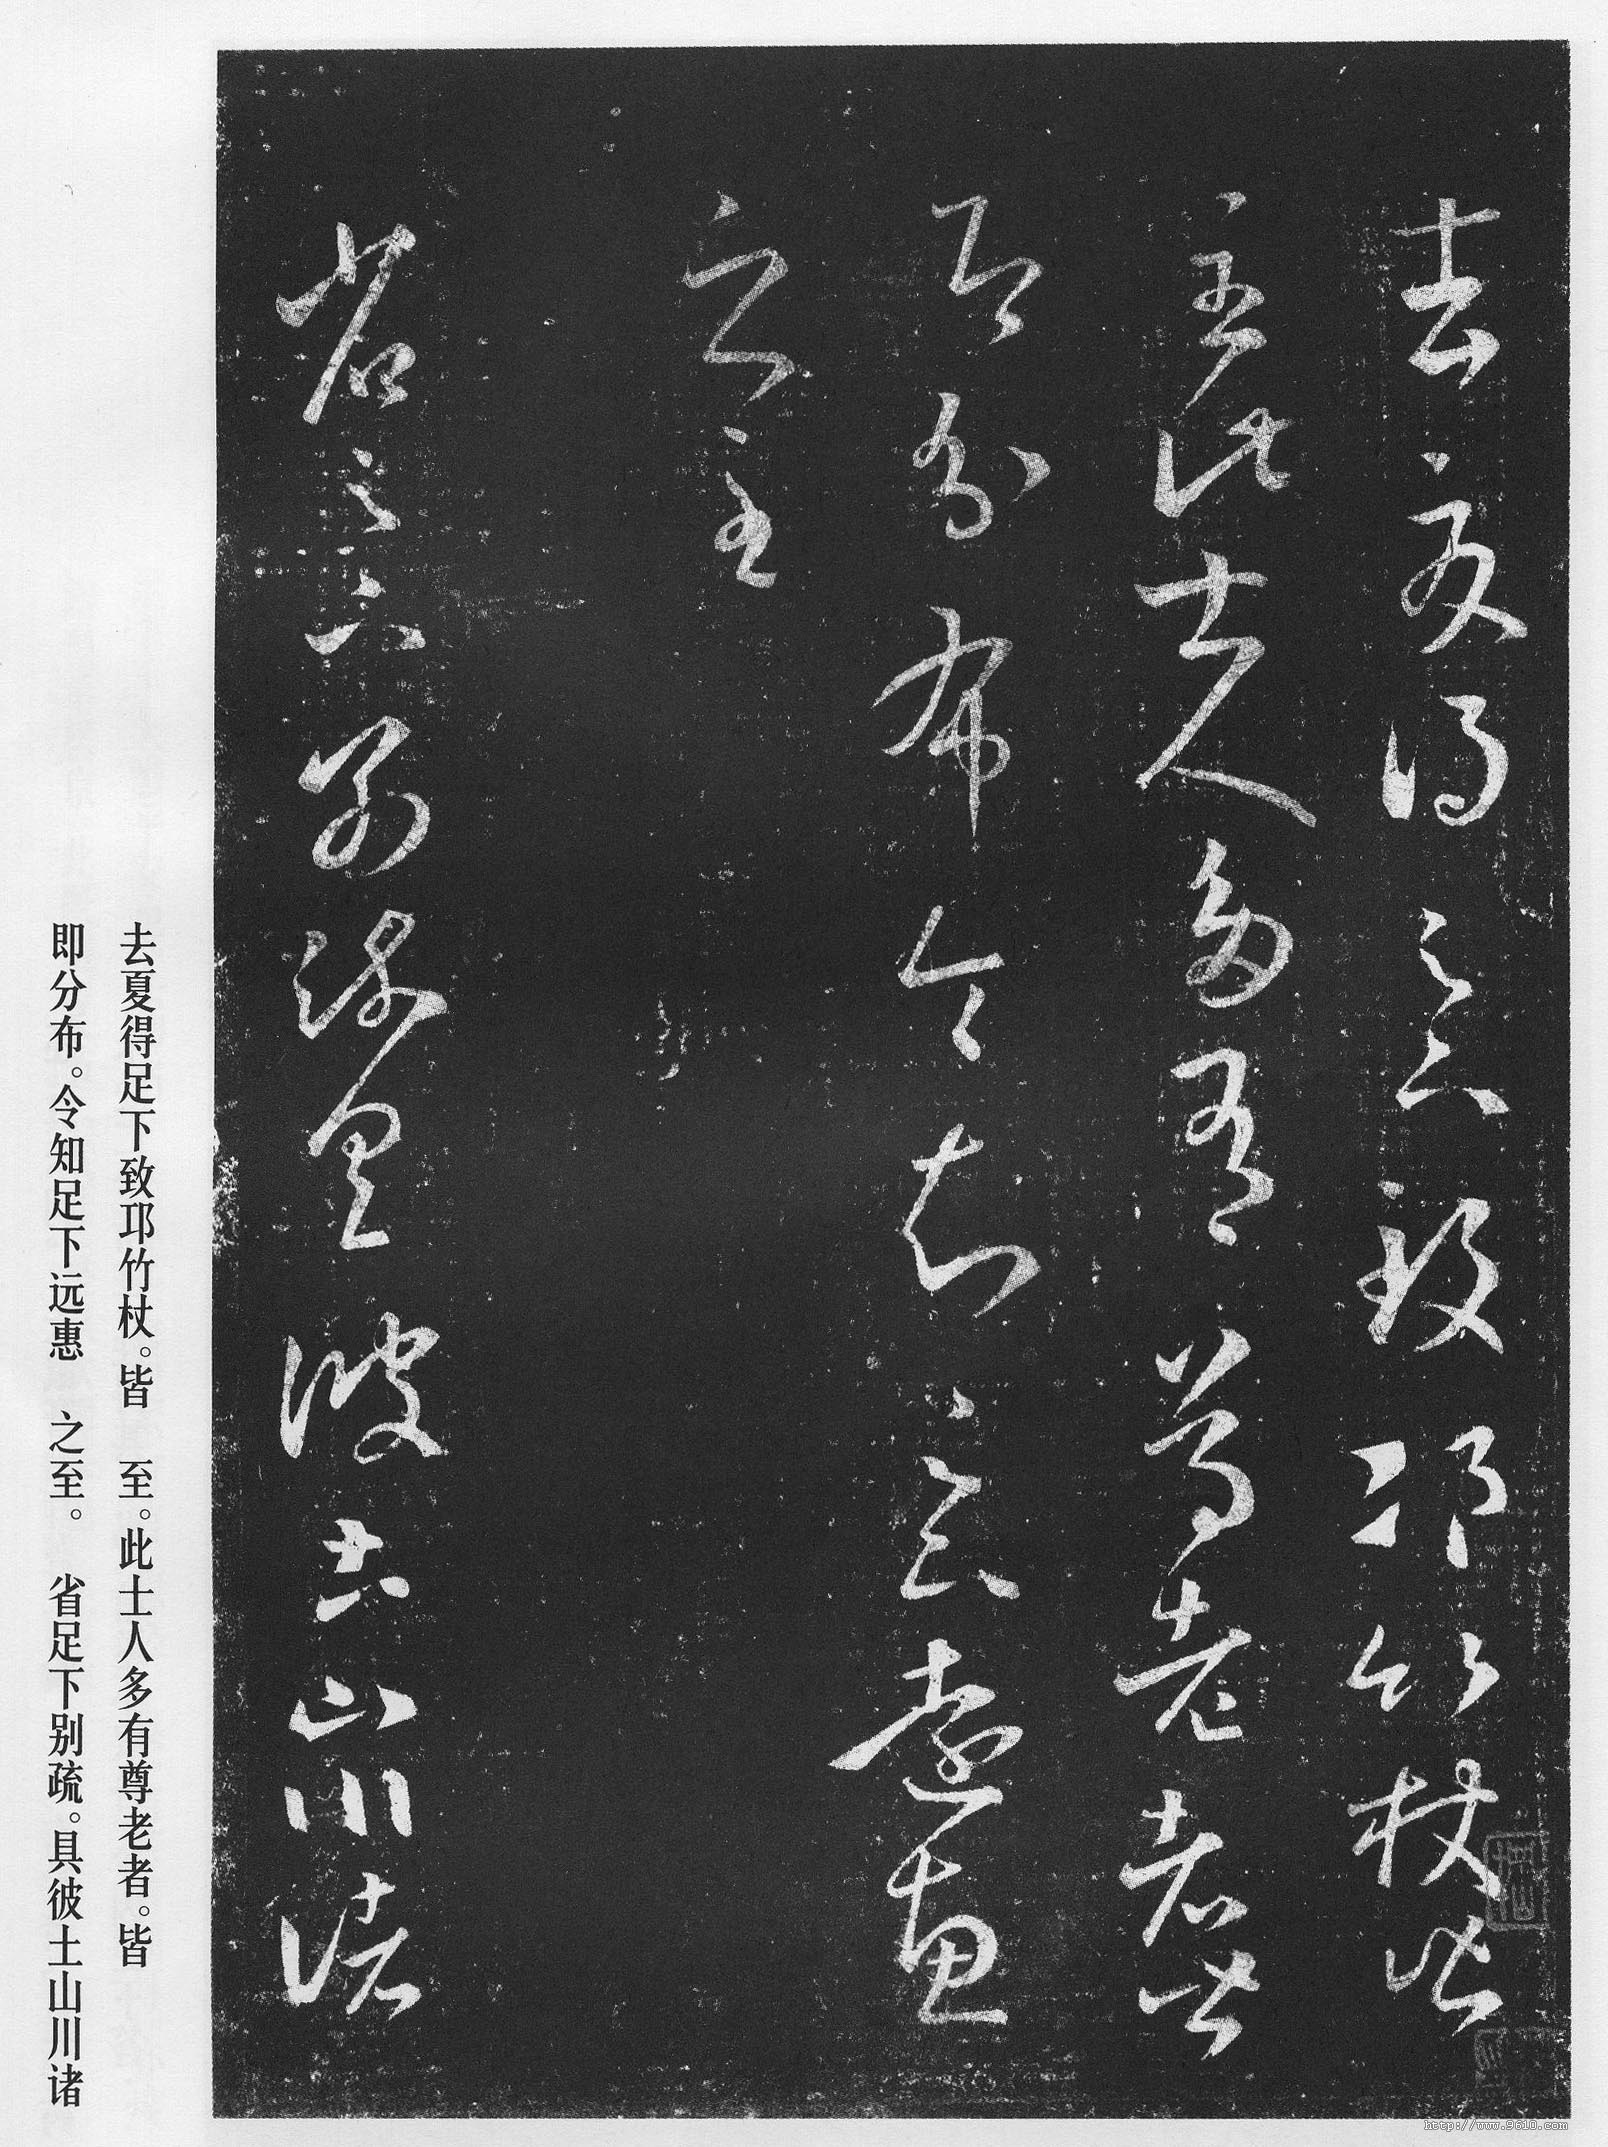 去夏得足下致邛竹杖皆
至此士人多有尊老者皆
即分布令知足下远惠
之至
省足下别疏具彼土山川诸
去夏得足下致邛竹杖。皆 至。此士人多有尊老者。皆
即分布。令知足下远惠 之至。 省足下别疏。具彼土山川诸
http://www.9610.com